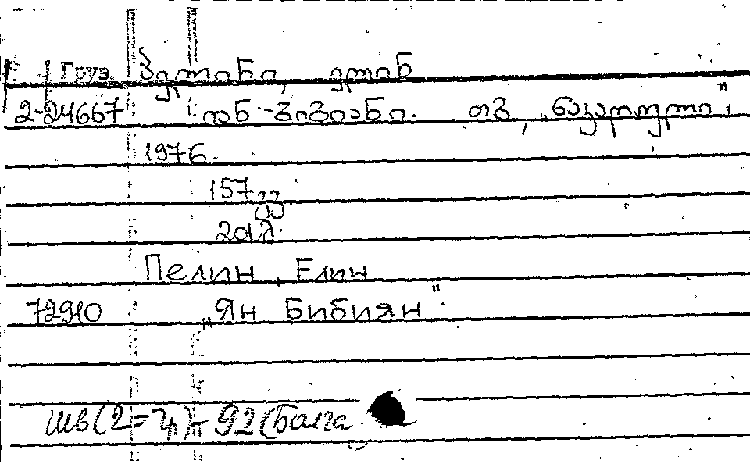 Груз პელინი, ელინ
2-24667 იან-ბიბიანი. თბ, „ნაკადული",
1976.
157 გვ
Пелин, Елин
72910 „Ян Бибиян"
ИИв(2=Гр)-92(Болга